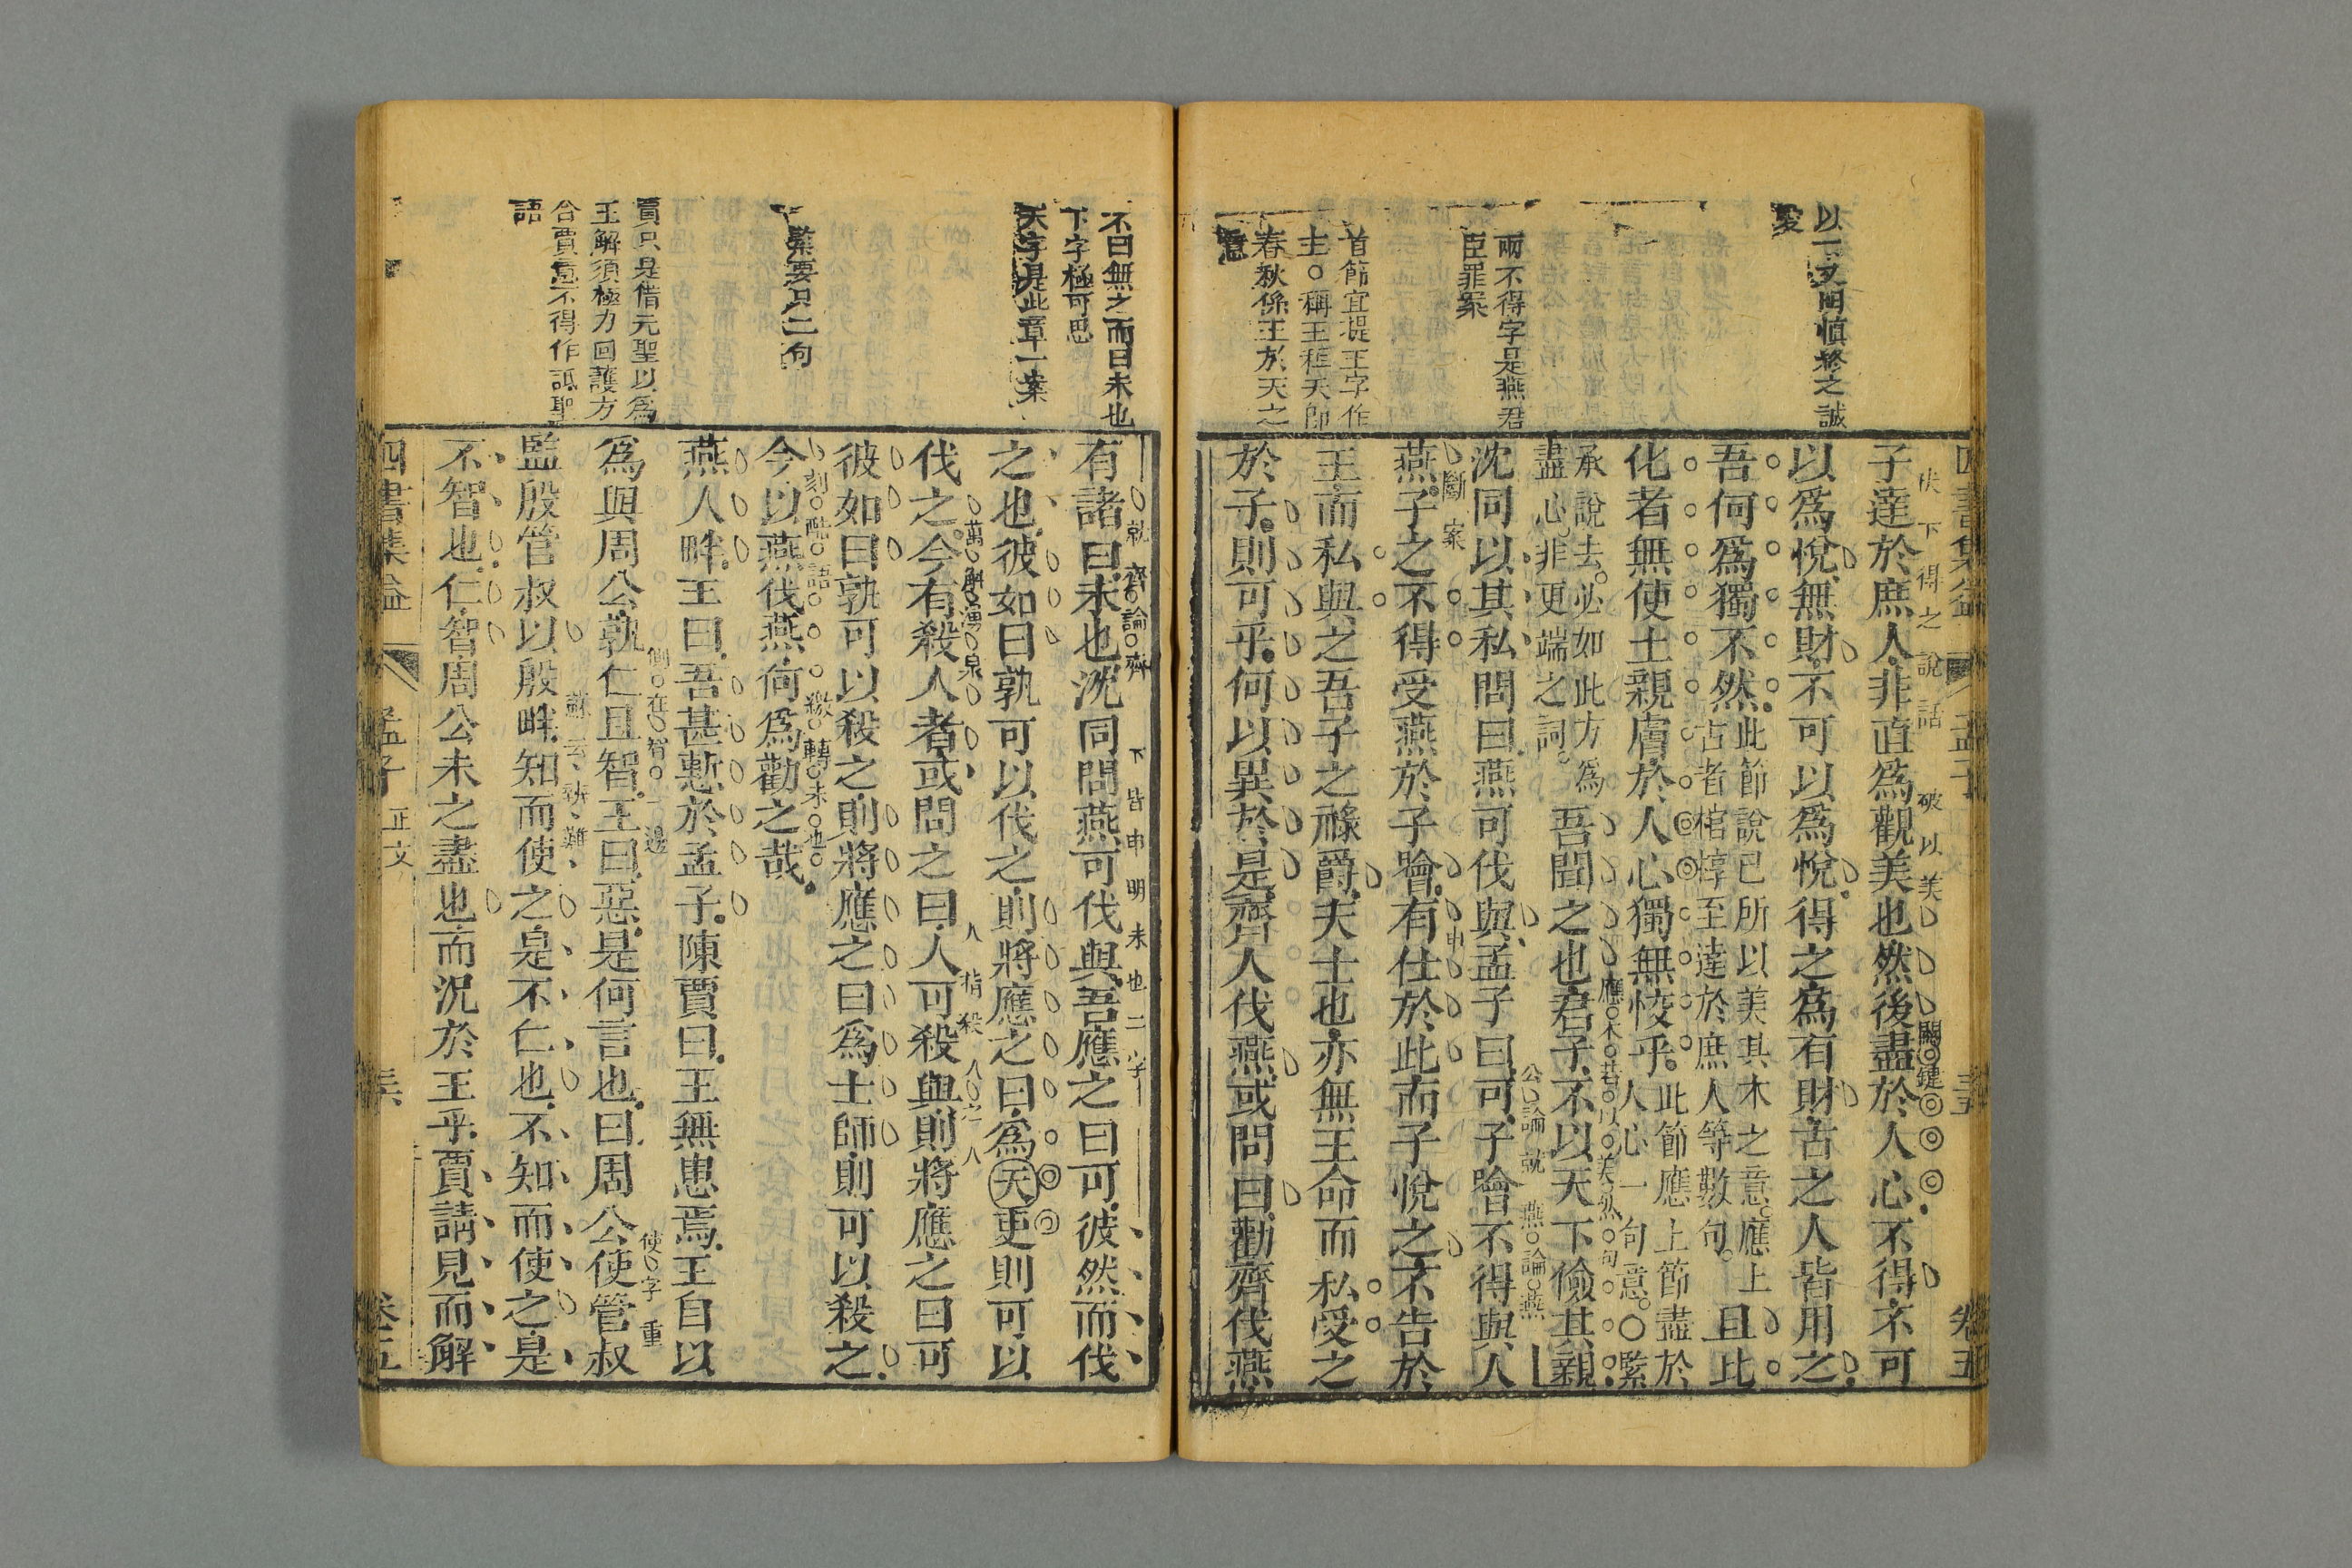 以一丈明慎終之誠
愛
兩不得字是燕君
臣罪案
首節宜提王字作
主○稱王稱天卽
春秋係王於天之
意
四書集益
孟子
卷五
伏下得之說話
破以美
關鍵
子達於庶人非直爲觀美也然後盡於人心不得不可
以爲悅無財不可以爲悅得之爲有財古之人皆用之
吾何爲獨不然此節說已所以美其木之意應上
古者棺椁至達於庶人等數句
且比
化者無使土親膚於人心獨無恔乎此節應上節盡於
人心一句意○緊
承說去必如此方爲
盡心非更端之詞
應木若以美然句
吾聞之也君子不以天下儉其親
公論就燕論燕
沈同以其私問曰燕可伐與孟子曰可子噲不得與人
斷案
燕子之不得受燕於子噲有仕於此而子悅之不告於
王而私與之吾子之祿爵夫士也亦無王命而私受之
於子則可乎何以異於是齊人伐燕或問曰勸齊伐燕
不曰無之而曰未也
下字極可思
天字是此章一案
緊要只二句
賈只是借元聖以爲
王解須極力回護方
合賈意不得作詆聖
語
就齊論齊
下皆申明未也二字
有諸曰未也沈同問燕可伐與吾應之曰可彼然而伐
之也彼如曰孰可以伐之則將應之曰爲天吏則可以
萬斛湧泉
人指殺人之人
伐之今有殺人者或問之曰人可殺與則將應之曰可
彼如曰孰可以殺之則將應之曰爲士師則可以殺之
刻酷語
繳轉未也
今以燕伐燕何爲勸之哉
燕人畔王曰吾甚慙於孟子陳賈曰王無患焉王自以
側在智一邊
使字重
爲與周公孰仁且智王曰惡是何言也曰周公使管叔
監殷管叔以殷畔知而使之是不仁也不知而使之是
不智也仁智周公未之盡也而況於王乎賈請見而解
四書集益
孟子
正文
卷五